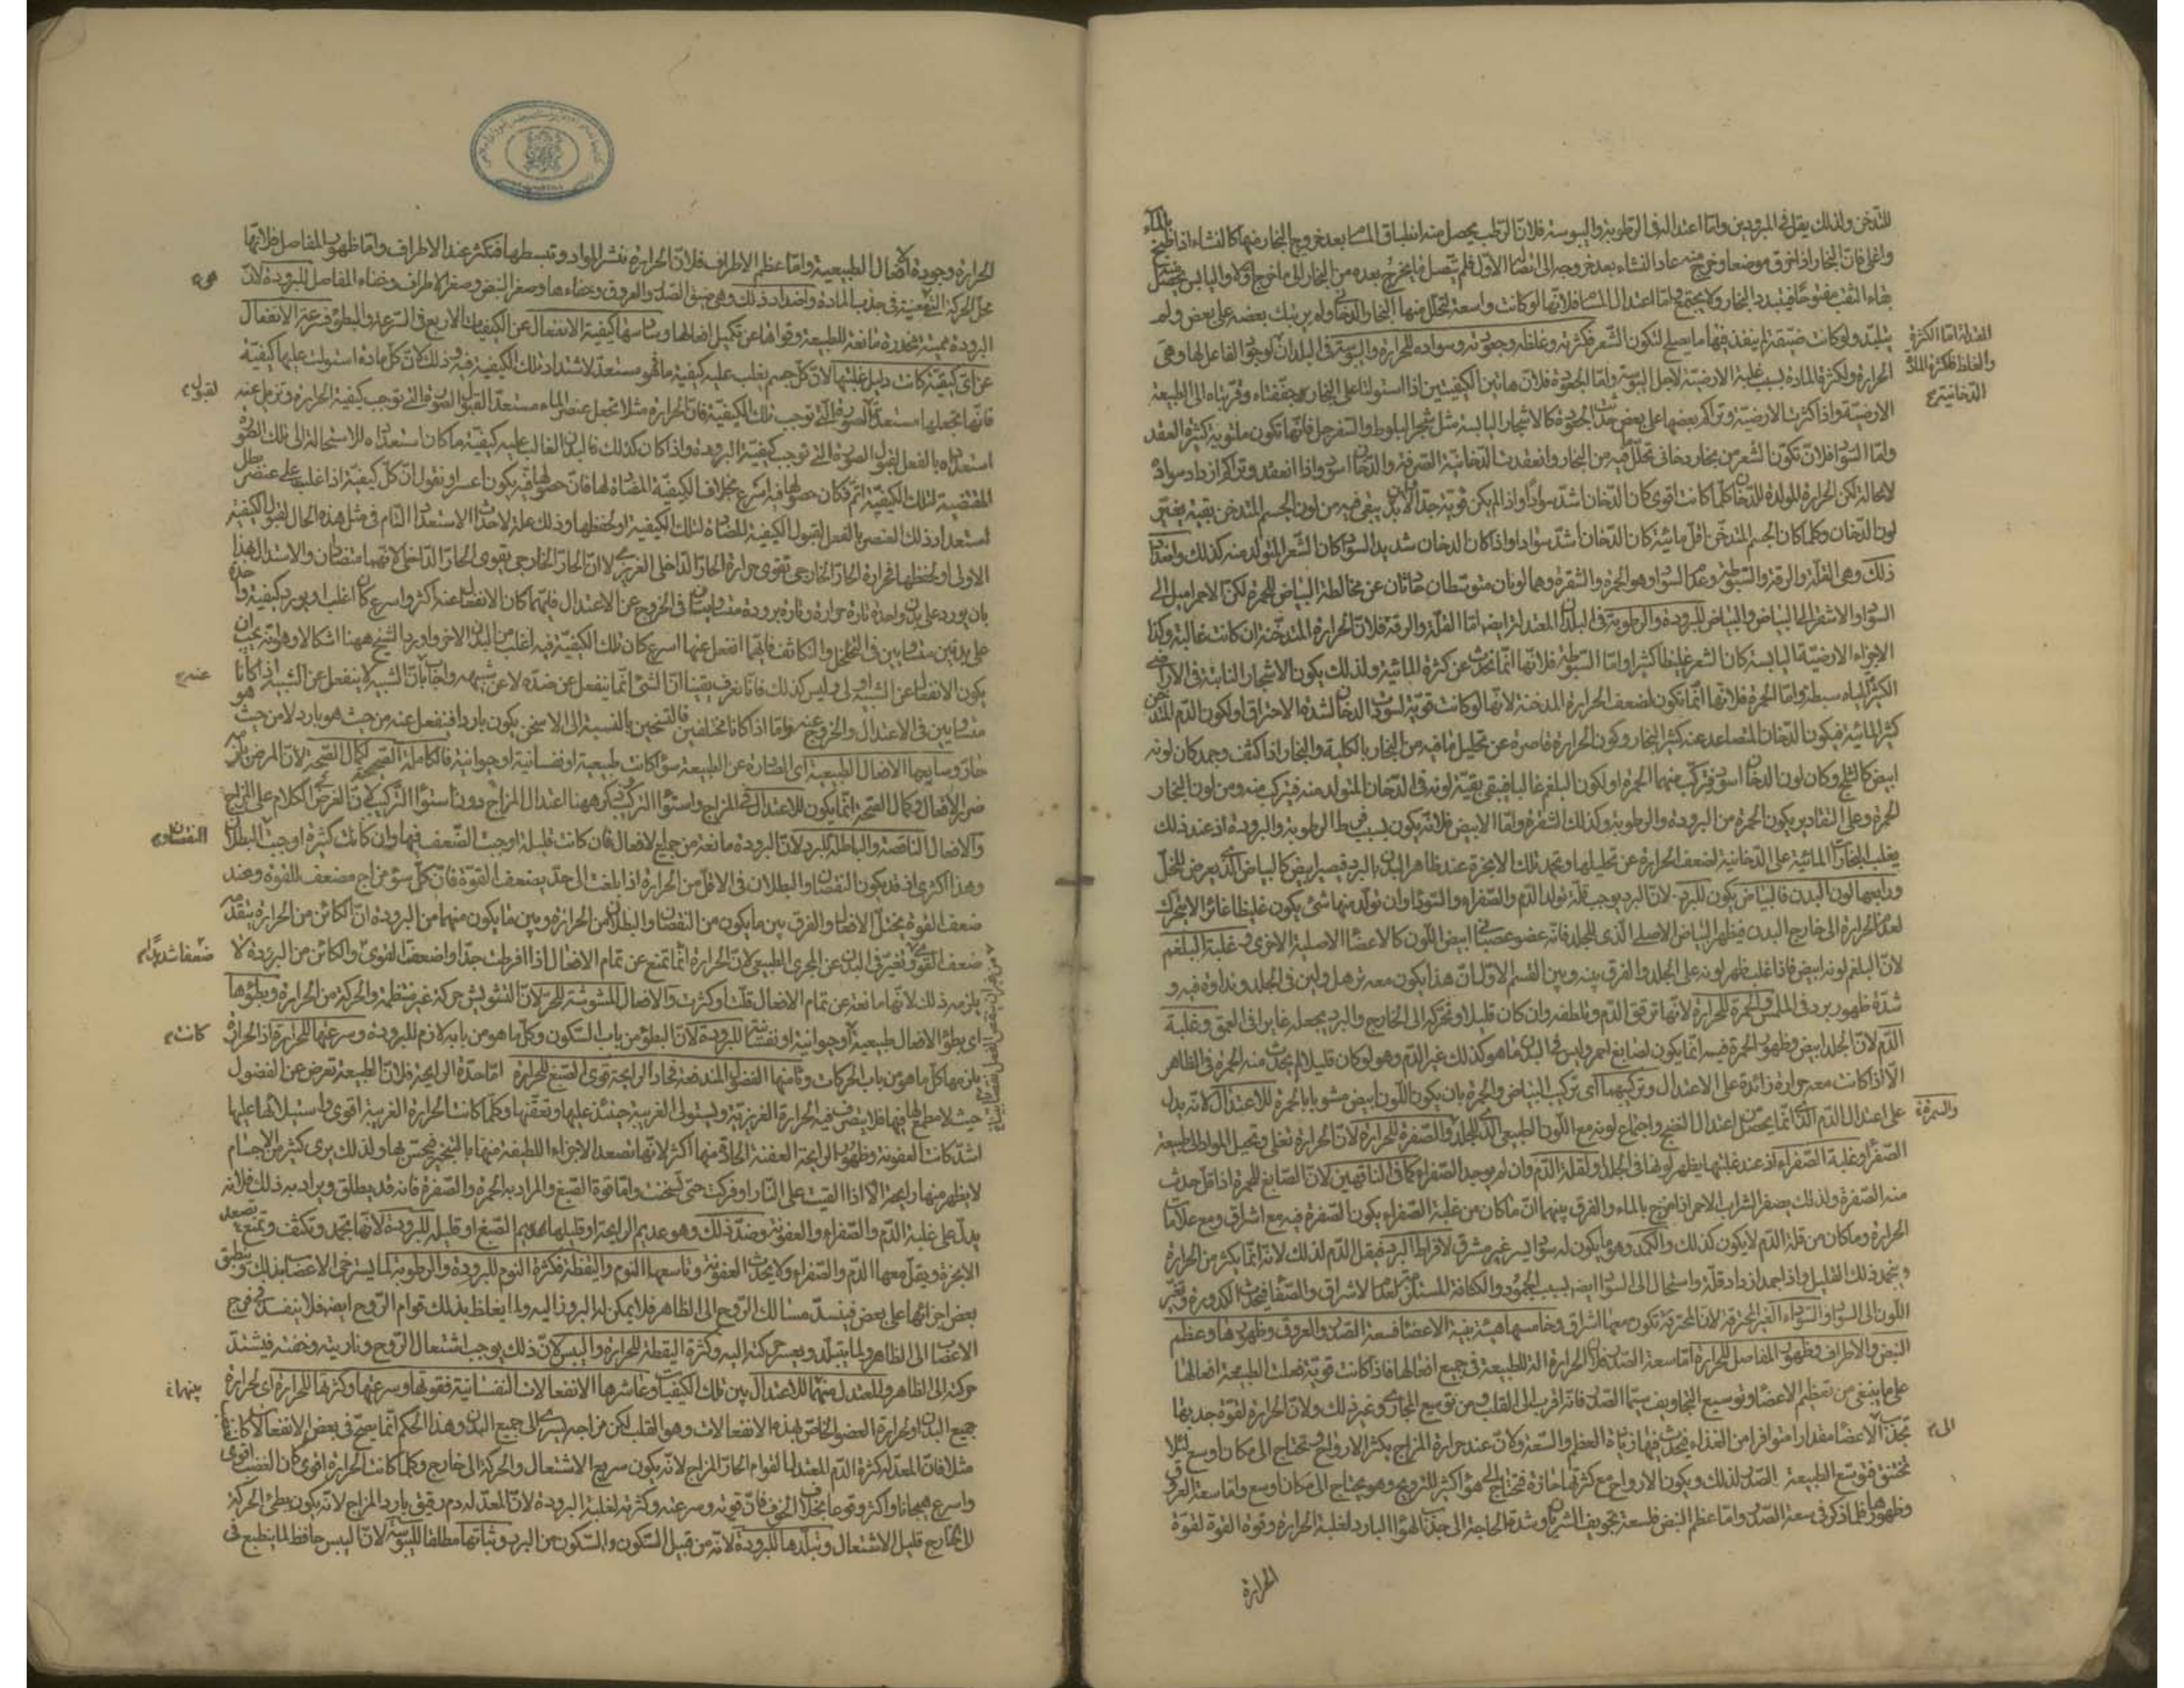 للتدخن ولذلك يقل في المبرودين واما اعتداله في الرطوبة واليبوسة فلان الرطب يحصل منه انطباق المسام بعد خروج البخار منها كالنشاء اذا طبخ بالماء
واغلى فان البخار اذا خرق موضعا وخرج منه عاد النشاء بعد خروجه الى اتصاله الاول فلم يتصل ما يخرج بعده من البخار الى ما خرج اولا واليابس يحصل
بقاء الثقب مفتوحا فيتبدد البخار ولا يجتمع واما اعتدال المسام فلانها لو كانت واسعة لتحلل منها البخار الدخاني ولم يرتبك بعضه على بعض ولم
يتلبد ولو كانت ضيقة لم ينفذ فيها ما يصلح لتكون الشعر فكثرته وغلظه وجعودته وسواده للحرارة واليبوسة في البلدان لوجود الفاعل لها وهي
الفضلة اما الكثرة
والغلظ فلكثرة المادة
الدخانية
الحرارة ولكثرة المادة بسبب غلبة الارضية لاجل اليبوسة واما الجعودة فلان هاتين الكيفيتين اذا استولتا على البخار جففتاه وقربتاه الى الطبيعة
الارضية واذا كثرت الارضية وتراكم بعضها على بعض حدثت الجعودة كالاشجار اليابسة مثل شجر البلوط والسفرجل فانها تكون ملتوية كثيرة العقد
واما السواد فلان تكون الشعر من بخار دخاني تحلل ما فيه من البخار وانعقدت الدخانية الصرفة والدخان اسود واذا انعقد وتراكم ازداد سواده
لا محالة لكن الحرارة المولدة للدخان كلما كانت اقوى كان الدخان اشد سوادا واذا لم يكن قوية جدا فلا بد ان يبقى فيه من لون الجسم المتدخن بقية يغير
لون الدخان وكلما كان الجسم المتدخن اقل مائية كان الدخان اشد سوادا واذا كان الدخان شديد السواد كان الشعر المتولد منه كذلك واضداد
ذلك وهي القلة والرقة والسبوطة وعدم السواد وهو الحمرة والشقرة وهما لونان متوسطان حادثان عن مخالطة البياض للحمرة لكن الاحمر اميل الى
السواد والاشقر الى البياض والبياض للبرودة والرطوبة في البلدان المعتدلة ايضا اما القلة والرقة فلان الحرارة المتدخنة ان كانت غالبة وكذا
الاجزاء الارضية اليابسة كان الشعر غليظا كثيرا واما السبوطة فلانها انما تحدث عن كثرة المائية ولذلك يكون الاشجار النابتة في الاراضي
الكثيرة المياه سبطة واما الحمرة فلانها انما تكون لضعف الحرارة المدخنة لانها لو كانت قوية لسودت الدخان لشدة الاحتراق او لكون الدم المتدخن
كثير المائية فيكون الدخان المتصاعد عنه كثير البخار وكون الحرارة قاصرة عن تحليل ما فيه من البخار بالكلية والبخار اذا كثف وجمد كان لونه
ابيض كالثلج وكان لون الدخان اسود فتركب منهما الحمرة او لكون البلغم غالبا فيبقى بقية لونه في الدخان المتولد منه فيتركب منه ومن لون البخار
الحمرة وعلى التقادير يكون الحمرة من البرودة والرطوبة وكذلك الشقرة واما الابيض فلانه يكون بسبب فرط الرطوبة والبرودة اذ عند ذلك
يغلب البخارات المائية على الدخانية لضعف الحرارة عن تحليلها وتجمد تلك الابخرة عند ظاهر البدن بالبرد فيصير ابيض كالبياض الذي يعرض للخل
ورابعها لون البدن فالبياض يكون للبرد لان البرد يوجب قلة تولد الدم والصفراء والسوداء وان تولد منها شيء يكون غليظا غائرا لا يتحرك
لعدم الحرارة الى خارج البدن فيظهر البياض الاصلي الذي للجلد فانه عضو عصباني ابيض اللون كالاعضاء الاصلية الاخرى وغلبة البلغم
لان البلغم لونه ابيض فاذا غلب ظهر لونه على الجلد والفرق بينه وبين القسم الاول ان هذا يكون معه ترهل ولين في الجلد ونداوة فيه و
شدة ظهور برد في الملمس والحمرة للحرارة لانها ترقق الدم وتلطفه وان كان قليلا وتحركه الى الخارج والبرد يجعله غايرا في العمق وغلبة
الدم لان الجلد ابيض وظهور الحمرة فيه انما يكون لصابغ احمر وليس في البدن ما هو كذلك غير الدم وهو لو كان قليلا لم يحدث منه الحمرة في الظاهر
الا اذا كانت معه حرارة زائدة على الاعتدال وتركيبهما اي تركيب البياض والحمرة بان يكون اللون ابيض مشوبا بالحمرة للاعتدال لانه يدل
والسمرة
على اعتدال الدم الذي انما يحصل من اعتدال النضج واجتماع لونه مع اللون الطبيعي الذي للجلد والصفرة للحرارة لان الحرارة تغلي وتحيل المواد الى طبيعة
الصفراء وغلبة الصفراء اذ عند غلبتها يظهر لونها في الجلد ولقلة الدم وان لم يوجد الصفراء كما في الناقهين لان الصابغ للحمرة اذا قل حدث
منه الصفرة ولذلك يصفر الشراب الاحمر اذا مزج بالماء والفرق بينهما ان ما كان من غلبة الصفراء يكون الصفرة فيه مع اشراق ومع علامات
الحرارة وما كان من قلة الدم لا يكون كذلك والكمد وهو ما يكون له سواد يسير غير مشرق لافراط البرد فيقل الدم لذلك لانه انما يكثر من الحرارة
ويتجمد ذلك القليل واذا جمد ازداد قلة واستحال الى السواد ايضا بسبب الجمود والكثافة المستلزمة لعدم الاشراق والصفاء فيحدث الكدورة وتغير
اللون الى السواد والسوداء الغير المحترقة لان المحترقة تكون معها اشراق وخامسها هيئة بقية الاعضاء فسعة الصدر والعروق وظهورها وعظم
النبض والاطراف وظهور المفاصل للحرارة اما سعة الصدر فلان الحرارة آلة للطبيعة في جميع افعالها فاذا كانت قوية فعلت الطبيعة افعالها
على ما ينبغي من تعظيم الاعضاء وتوسيع التجاويف سيما الصدر فانه اقرب الى القلب ومن توسيع المجاري وغير ذلك ولان الحرارة لقوة جذبها
الى
تجذب الاعضاء مقدارا متوافرا من الغذاء فيحدث فيها زيادة العظم والسعة ولان عند حرارة المزاج يكثر الارواح وتحتاج الى مكان اوسع لئلا
تختنق فتوسع الطبيعة الصدر لذلك ويكون الارواح مع كثرتها حارة فتحتاج الى هواء كثير للترويح وهو يحتاج الى مكان واسع واما سعة العروق
وظهورها فلما ذكر في سعة الصدر واما عظم النبض فلسعة تجويف الشريان وشدة الحاجة الى جذب الهواء البارد لغلبة الحرارة وقوة القوة لقوة
الحرارة
الحرارة وجودة الافعال الطبيعية واما عظم الاطراف فلان الحرارة تنشر المواد وتبسطها فتكثر عند الاطراف واما ظهور المفاصل فلانها
محل الحركة في جذب المادة واضداد ذلك وهي ضيق الصدر والعروق وخفاءها وصغر النبض وصغر الاطراف وخفاء المفاصل للبرودة لان
البرودة مميتة مخدرة مانعة للطبيعة وقواها عن تكميل افعالها وسادسها كيفية الانفعال عن الكيفيات الاربع في السرعة والبطوء فسرعة الانفعال
عن اي كيفية كانت دليل غلبتها لان كل جسم يغلب عليه كيفية ما فهو مستعد لاشتداد تلك الكيفية فيه وذلك لان كل مادة استولت عليها كيفية
لقبول
فانها تجعلها مستعدة للصورة التي توجب تلك الكيفية فان الحرارة مثلا تجعل عنصر الماء مستعدا لقبول الصورة التي توجب كيفية الحرارة وتزيل عنه
استعداده بالفعل لقبول الصورة التي توجب كيفية البرودة واذا كان كذلك فالبدن الغالب عليه كيفية ما كان استعداده للاستحالة الى تلك الصورة
المقتضية لتلك الكيفية اتم فكان حصولها فيه اسرع بخلاف الكيفية المضادة لها فان حصولها فيه يكون اعسر او نقول ان كل كيفية اذا غلبت على عنصر بطل
استعداد ذلك العنصر بالفعل لقبول الكيفية المضادة لتلك الكيفية او لحفظها وذلك علة لاحداث الاستعداد التام في مثل هذه الحال لقبول الكيفية
الاولى او لحفظها فحرارة الحار الخارجي تقوي حرارة الحار الداخلي الغريزي لا ان الحار الخارجي يقوي الحار الداخلي لانهما متضادان والاستدلال بهذا
بان يورد على بدن واحد تارة حرارة وتارة برودة متساويتان في الخروج عن الاعتدال فايهما كان الانفعال عنه اكثر واسرع كان اغلب او يورد كيفية واحدة
على بدنين متشابهين في التخلخل والتكاثف فايهما انفعل عنها اسرع كان تلك الكيفية فيه اغلب من البدن الاخر واورد الشيخ ههنا اشكالا وهو انه يجب ان
عنه
يكون الانفعال عن الشبيه اولى وليس كذلك فانا نعرف يقينا ان الشيء انما ينفعل عن ضده لا عن شبيهه واجاب بان الشبيه لا ينفعل عن الشبيه اذا كانا
متشابهين في الاعتدال والخروج عنه واما اذا كانا مختلفين فالتسخين بالنسبة الى الاسخن يكون باردا فينفعل عنه من حيث هو بارد لا من حيث هو
حار وسابعها الافعال الطبيعية اي الصادرة عن الطبيعة سواء كانت طبيعية او نفسانية او حيوانية فالكاملة الصحيحة لكمال الصحة لان المرض يلزمه
ضرر الافعال وكمال الصحة انما يكون للاعتدال في المزاج واستواء التركيب ههنا اعتدال المزاج دون استواء التركيب لان الغرض الكلام على المزاج
والافعال الناقصة والباطلة للبرد لان البرودة مانعة من جميع الافعال فان كانت قليلة اوجبت الضعف فيها وان كانت كثيرة اوجبت البطلان
النقصان
وهذا اكثري اذ قد يكون النقصان والبطلان في الاقل من الحرارة اذا بلغت الى حد يضعف القوة فان كل سوء مزاج مضعف للقوة وعند
ضعف القوة يختل الافعال والفرق بين ما يكون من النقصان والبطلان من الحرارة وبين ما يكون منهما من البرودة ان الكائن من الحرارة يتقدمه
ضعفا شديدا
ضعف القوى وتغير في البدن عن المجرى الطبيعي لان الحرارة انما تمنع عن تمام الافعال اذا افرطت جدا واضعفت القوى والكائن من البرودة لا
يلزمه ذلك لانها مانعة عن تمام الافعال قلت او كثرت والافعال المشوشة للحر لان التشويش حركة غير منتظمة والحركة من الحرارة وبطوءها
كانت
اي بطوء الافعال طبيعية او حيوانية او نفسانية للبرودة لان البطوء من باب السكون وكل ما هو من بابه لازم للبرودة وسرعتها للحرارة اذ الحرارة
يلزمها كل ما هو من باب الحركات وثامنها الفضول المندفعة فحاد الرايحة قوي الصبغ للحرارة اما حدة الرايحة فلان الطبيعة تعرض عن الفضول
حيث لا مطمع لها فيها فلا يتصرف فيه الحرارة الغريزية ويستولي الغريبة حينئذ عليها وتعفنها وكلما كانت الحرارة الغريبة اقوى واستيلاءها عليها
اشد كانت العفونة وظهور الرايحة العفنة الحادة منها اكثر لانها تصعد الاجزاء اللطيفة منها بالتبخير فيحس بها ولذلك يرى كثير من الاجسام
لا يظهر منها رايحة الا اذا القيت على النار او فركت حتى سخنت واما قوة الصبغ والمراد به الحمرة والصفرة فانه قد يطلق ويراد به ذلك فلانه
يدل على غلبة الدم والصفراء والعفونة وضد ذلك وهو عديم الرايحة او قليلها عديم الصبغ او قليله للبرودة لانها تجمد وتكثف وتمنع تصعد
الابخرة ويقل معها الدم والصفراء ولا يحدث العفونة وتاسعها النوم واليقظة فكثرة النوم للبرودة والرطوبة لما يسترخي الاعصاب بذلك وينطبق
بعض اجزائها على بعض فينسد مسالك الروح الى الظاهر فلا يمكن لها البروز اليه ولما يغلظ بذلك قوام الروح ايضا فلا ينفذ في فرج
الاعصاب الى الظاهر ولما يتبلد ويعسر حركته اليه وكثرة اليقظة للحرارة واليبس لان ذلك يوجب اشتعال الروح وناريته وخفته فيشتد
بينهما
حركته الى الظاهر والمعتدل منهما للاعتدال بين تلك الكيفيات وعاشرها الانفعالات النفسانية فقوتها وسرعتها وكثرتها للحرارة اي لحرارة
جميع البدن او لحرارة العضو الخاص بهذه الانفعالات وهو القلب لكن مزاجه يسري الى جميع البدن وهذا الحكم انما يصح في بعض الانفعالات كالغضب
مثلا فان المعد له كثرة الدم المعتدل القوام الحار المزاج لانه يكون سريع الاشتعال والحركة الى خارج وكلما كانت الحرارة اقوى كان الغضب اقوى
واسرع هيجانا واكثر وقوعا بخلاف الخوف فان قوته وسرعته وكثرته لغلبة البرودة لان المعد له دم رقيق بارد المزاج لانه يكون بطيء الحركة
الى الخارج قليل الاشتعال وتبلدها للبرودة لانه من قبيل السكون والسكون من البرد وثباتها مطلقا لليبوسة لان اليبس حافظ لما ينطبع في